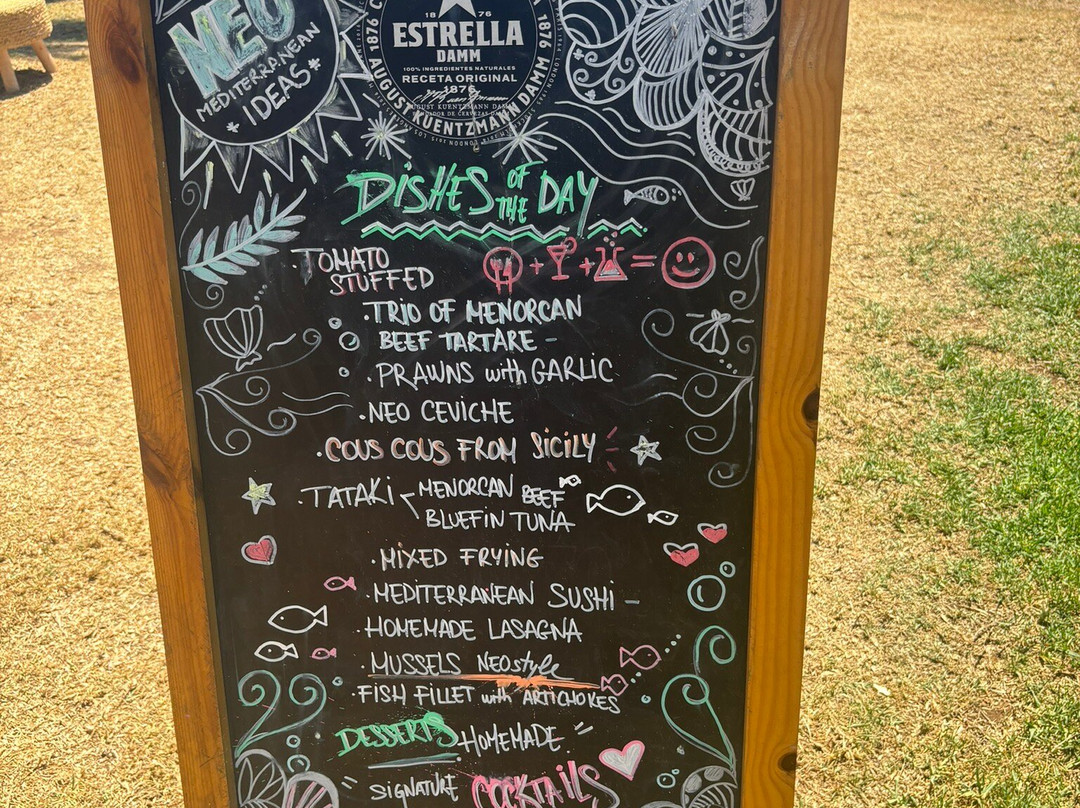 NEO
MEDITERRANEAN
IDEAS
18 76
ESTRELLA
DAMM
100% INGREDIENTES NATURALES
RECETA ORIGINAL
1876
AUGUST KUENTZMANN DAMM
1876 AUGUST KUENTZMANN DAMM 1876
DISHES OF THE DAY
· TOMATO
STUFFED
+ + =
· TRIO OF MENORCAN
BEEF TARTARE -
· PRAWNS with GARLIC
· NEO CEVICHE
· COUS COUS FROM SICILY
· TATAKI < MENORCAN BEEF
BLUEFIN TUNA
· MIXED FRYING
· MEDITERRANEAN SUSHI -
· HOMEMADE LASAGNA
· MUSSELS NEO style
· FISH FILLET with ARTICHOKES
DESSERTS HOMEMADE "
" SIGNATURE COCKTAILS